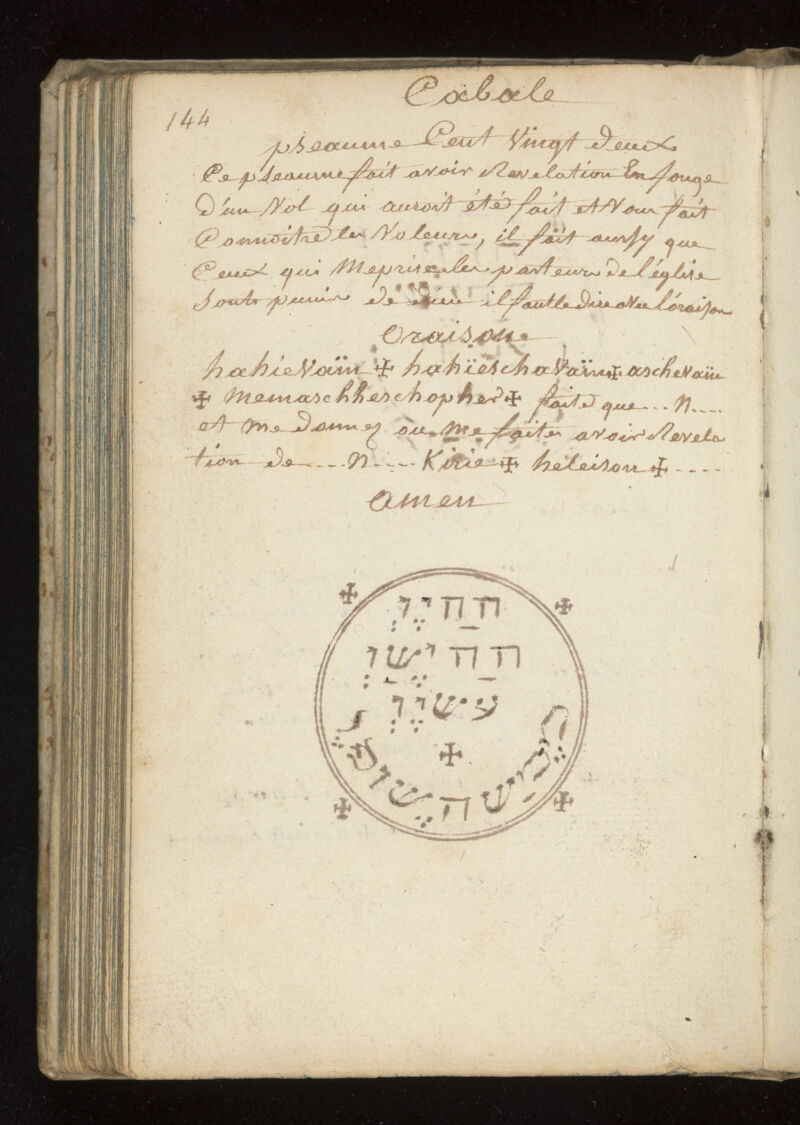 Cabale
144
pseaume Cent vingt deux
Ce pseaume fait avoir Revelation En songe
d'un Vol qui auroit été fait et Vous fait
Connoitre les Voleurs, il fait aussy que
Ceux qui Meprise les pasteurs de l'église
Sont punis de dieu il faut le dire avec l'oraison
Oraison
hahieVaïn ✠ hahïeschaVaïn ✠ ascheVaïn
✠ Memaschheschopher ✠ faite que ... N ....
et me donnez ou me faites avoir Revela
tion de .... N .... Kirié ✠ héleison ✠ ....
amen
✠ ✠
חַחיֶוְ
חַהיֶשֲוְ
עשיֶוְ
✠
✠ ✠